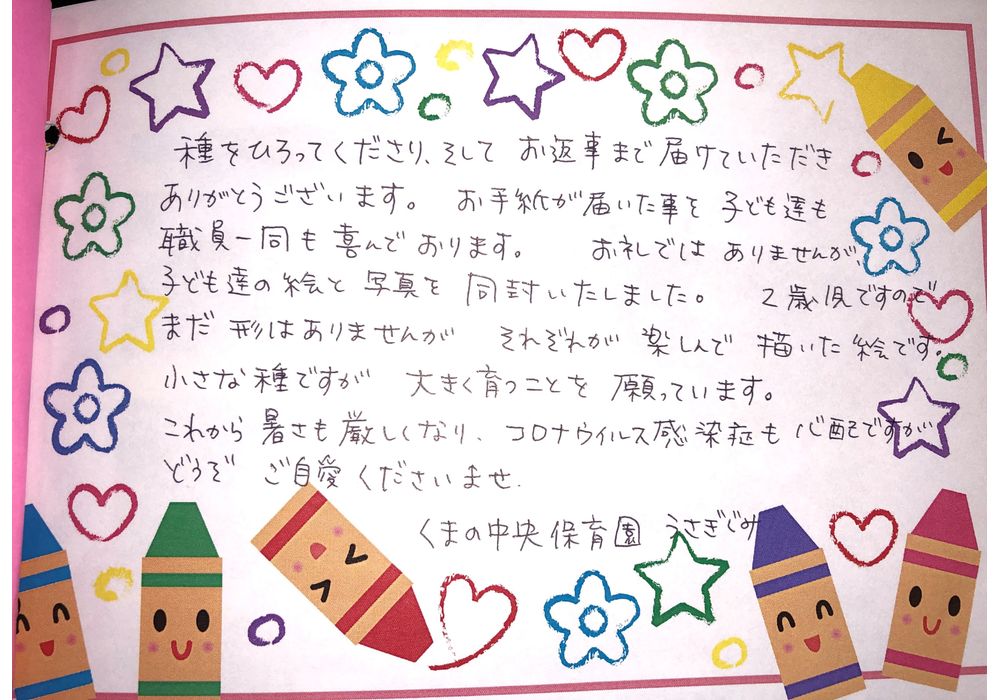 種をひろってくださり、そして お返事まで届けていただき
ありがとうございます。 お手紙が届いた事を 子ども達も
職員一同も喜んでおります。 お礼ではありませんが、
子ども達の絵と写真を同封いたしました。 2歳児ですので
まだ形はありませんが それぞれが楽しんで描いた絵です。
小さな種ですが 大きく育つことを願っています。
これから暑さも厳しくなり、コロナウイルス感染症も心配ですが
どうぞ ご自愛くださいませ.
くまの中央保育園 うさぎぐみ